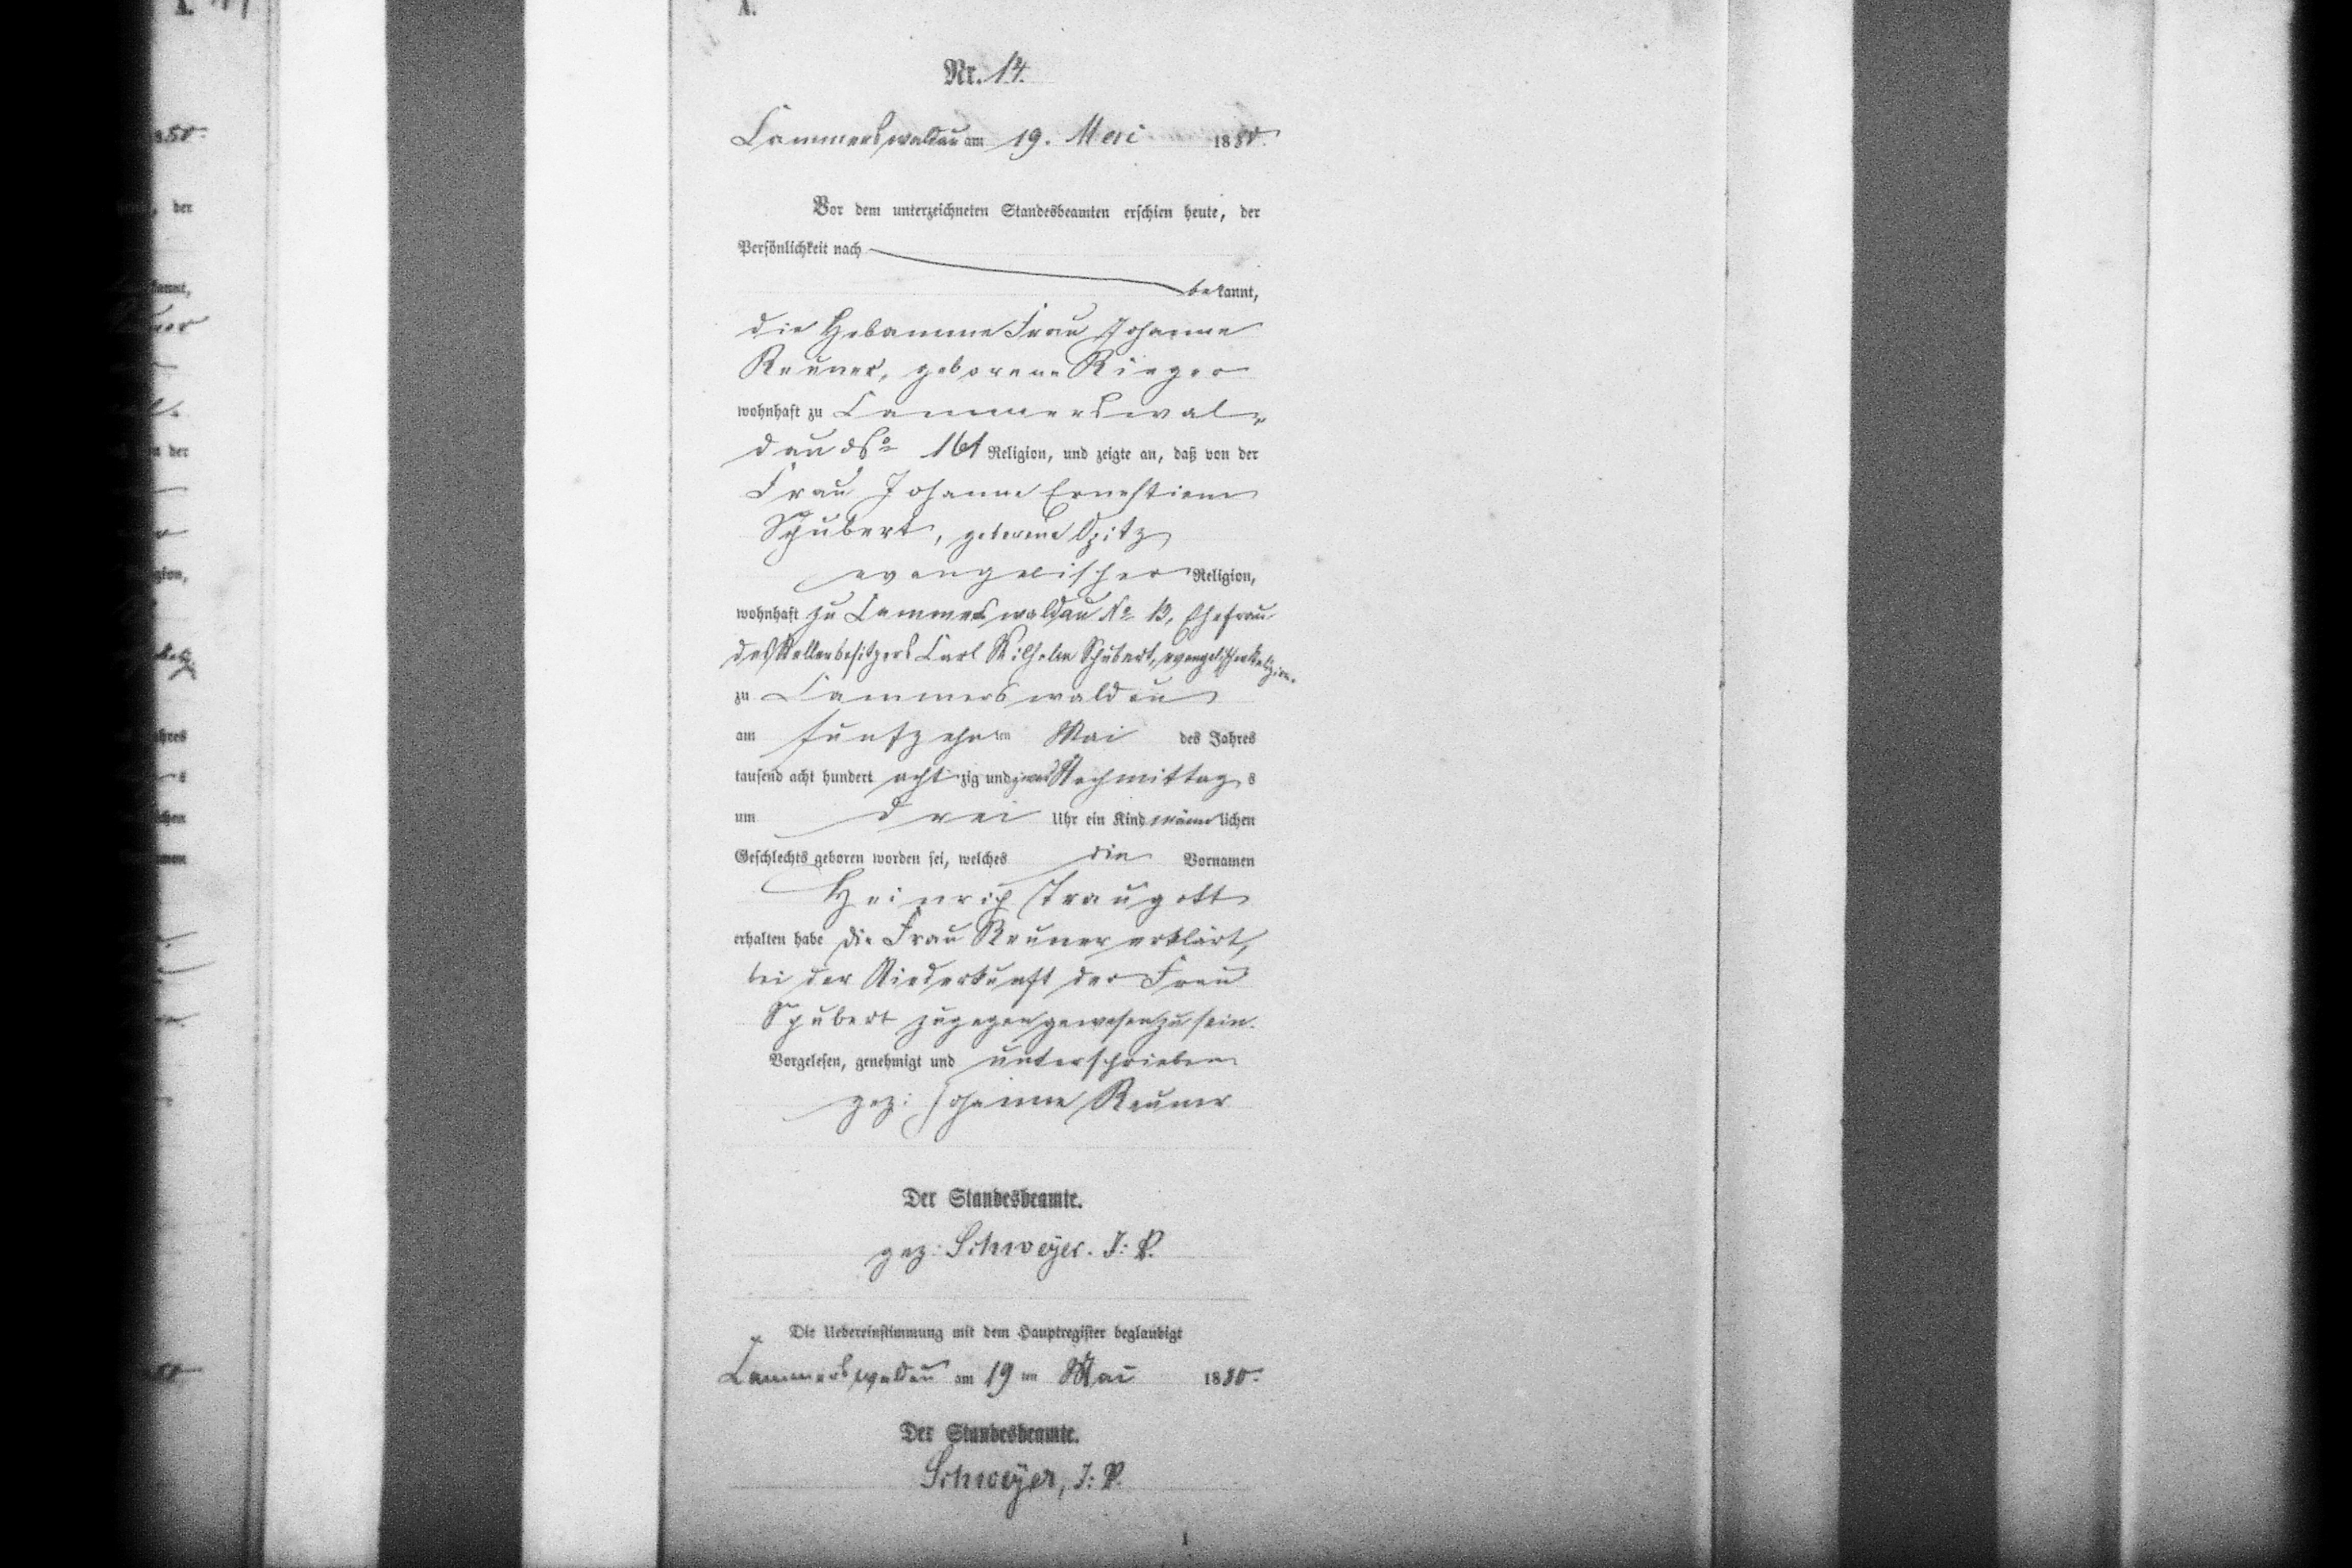 A.
Nr. 14.
Cammerswaldau am 19. Mai 1880.
Vor dem unterzeichneten Standesbeamten erschien heute, der
Persönlichkeit nach
bekannt,
die Hebamme Frau Johanne
Reuner, geborene Rieger
wohnhaft zu Cammerswal-
dau No 161 Religion, und zeigte an, daß von der
Frau Johanne Ernestine
Schubert, geborene Opitz
evangelischer Religion,
wohnhaft zu Cammerswaldau No 13, Ehefrau
des Stellenbesitzers Carl Wilhelm Schubert, evangelischer Religion.
zu Cammerswaldau
am fünfzehnten Mai des Jahres
tausend acht hundert achtzig und Nachmittags
um drei Uhr ein Kind männlichen
Geschlechts geboren worden sei, welches die Vornamen
Heinrich Traugott
erhalten habe die Frau Reuner erklärt,
bei der Niederkunft der Frau
Schubert zugegen gewesen zu sein.
Vorgelesen, genehmigt und unterschrieben
gez: Johanne Reuner
Der Standesbeamte.
gez: Schweyer. I: V.
Die Uebereinstimmung mit dem Hauptregister beglaubigt
Cammerswaldau am 19ten Mai 1880.
Der Standesbeamte.
Schweyer, I: V.
1